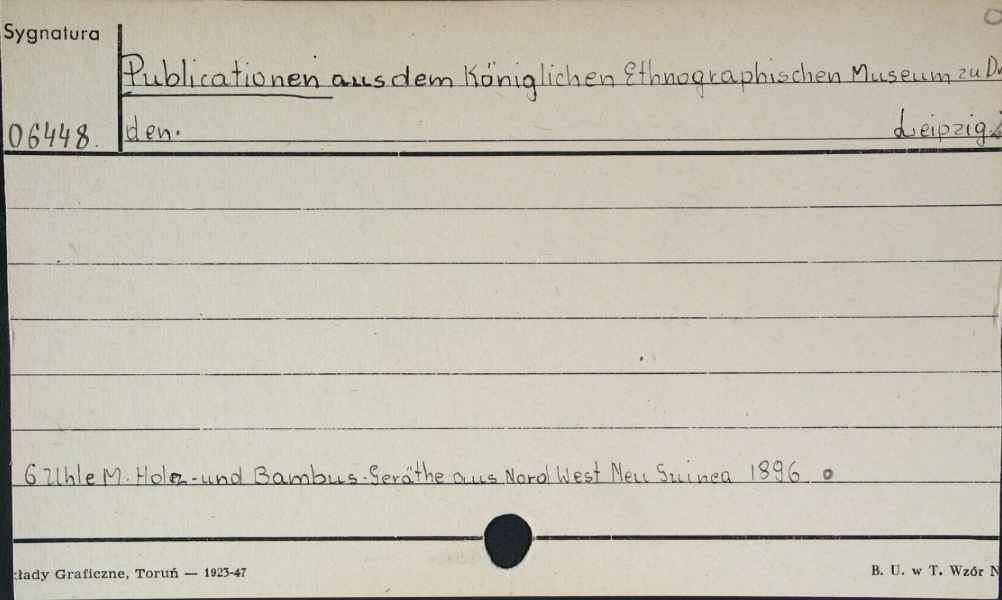 Sygnatura
Publicationen aus dem Königlichen Ethnographischen Museum zu
06448. den. Leipzig
6 Uhle M. Holz- und Bambus-Geräthe aus Nord West Neu Guinea 1896
Graficzne, Toruń — 1923-47
B. U. w T. Wzór N